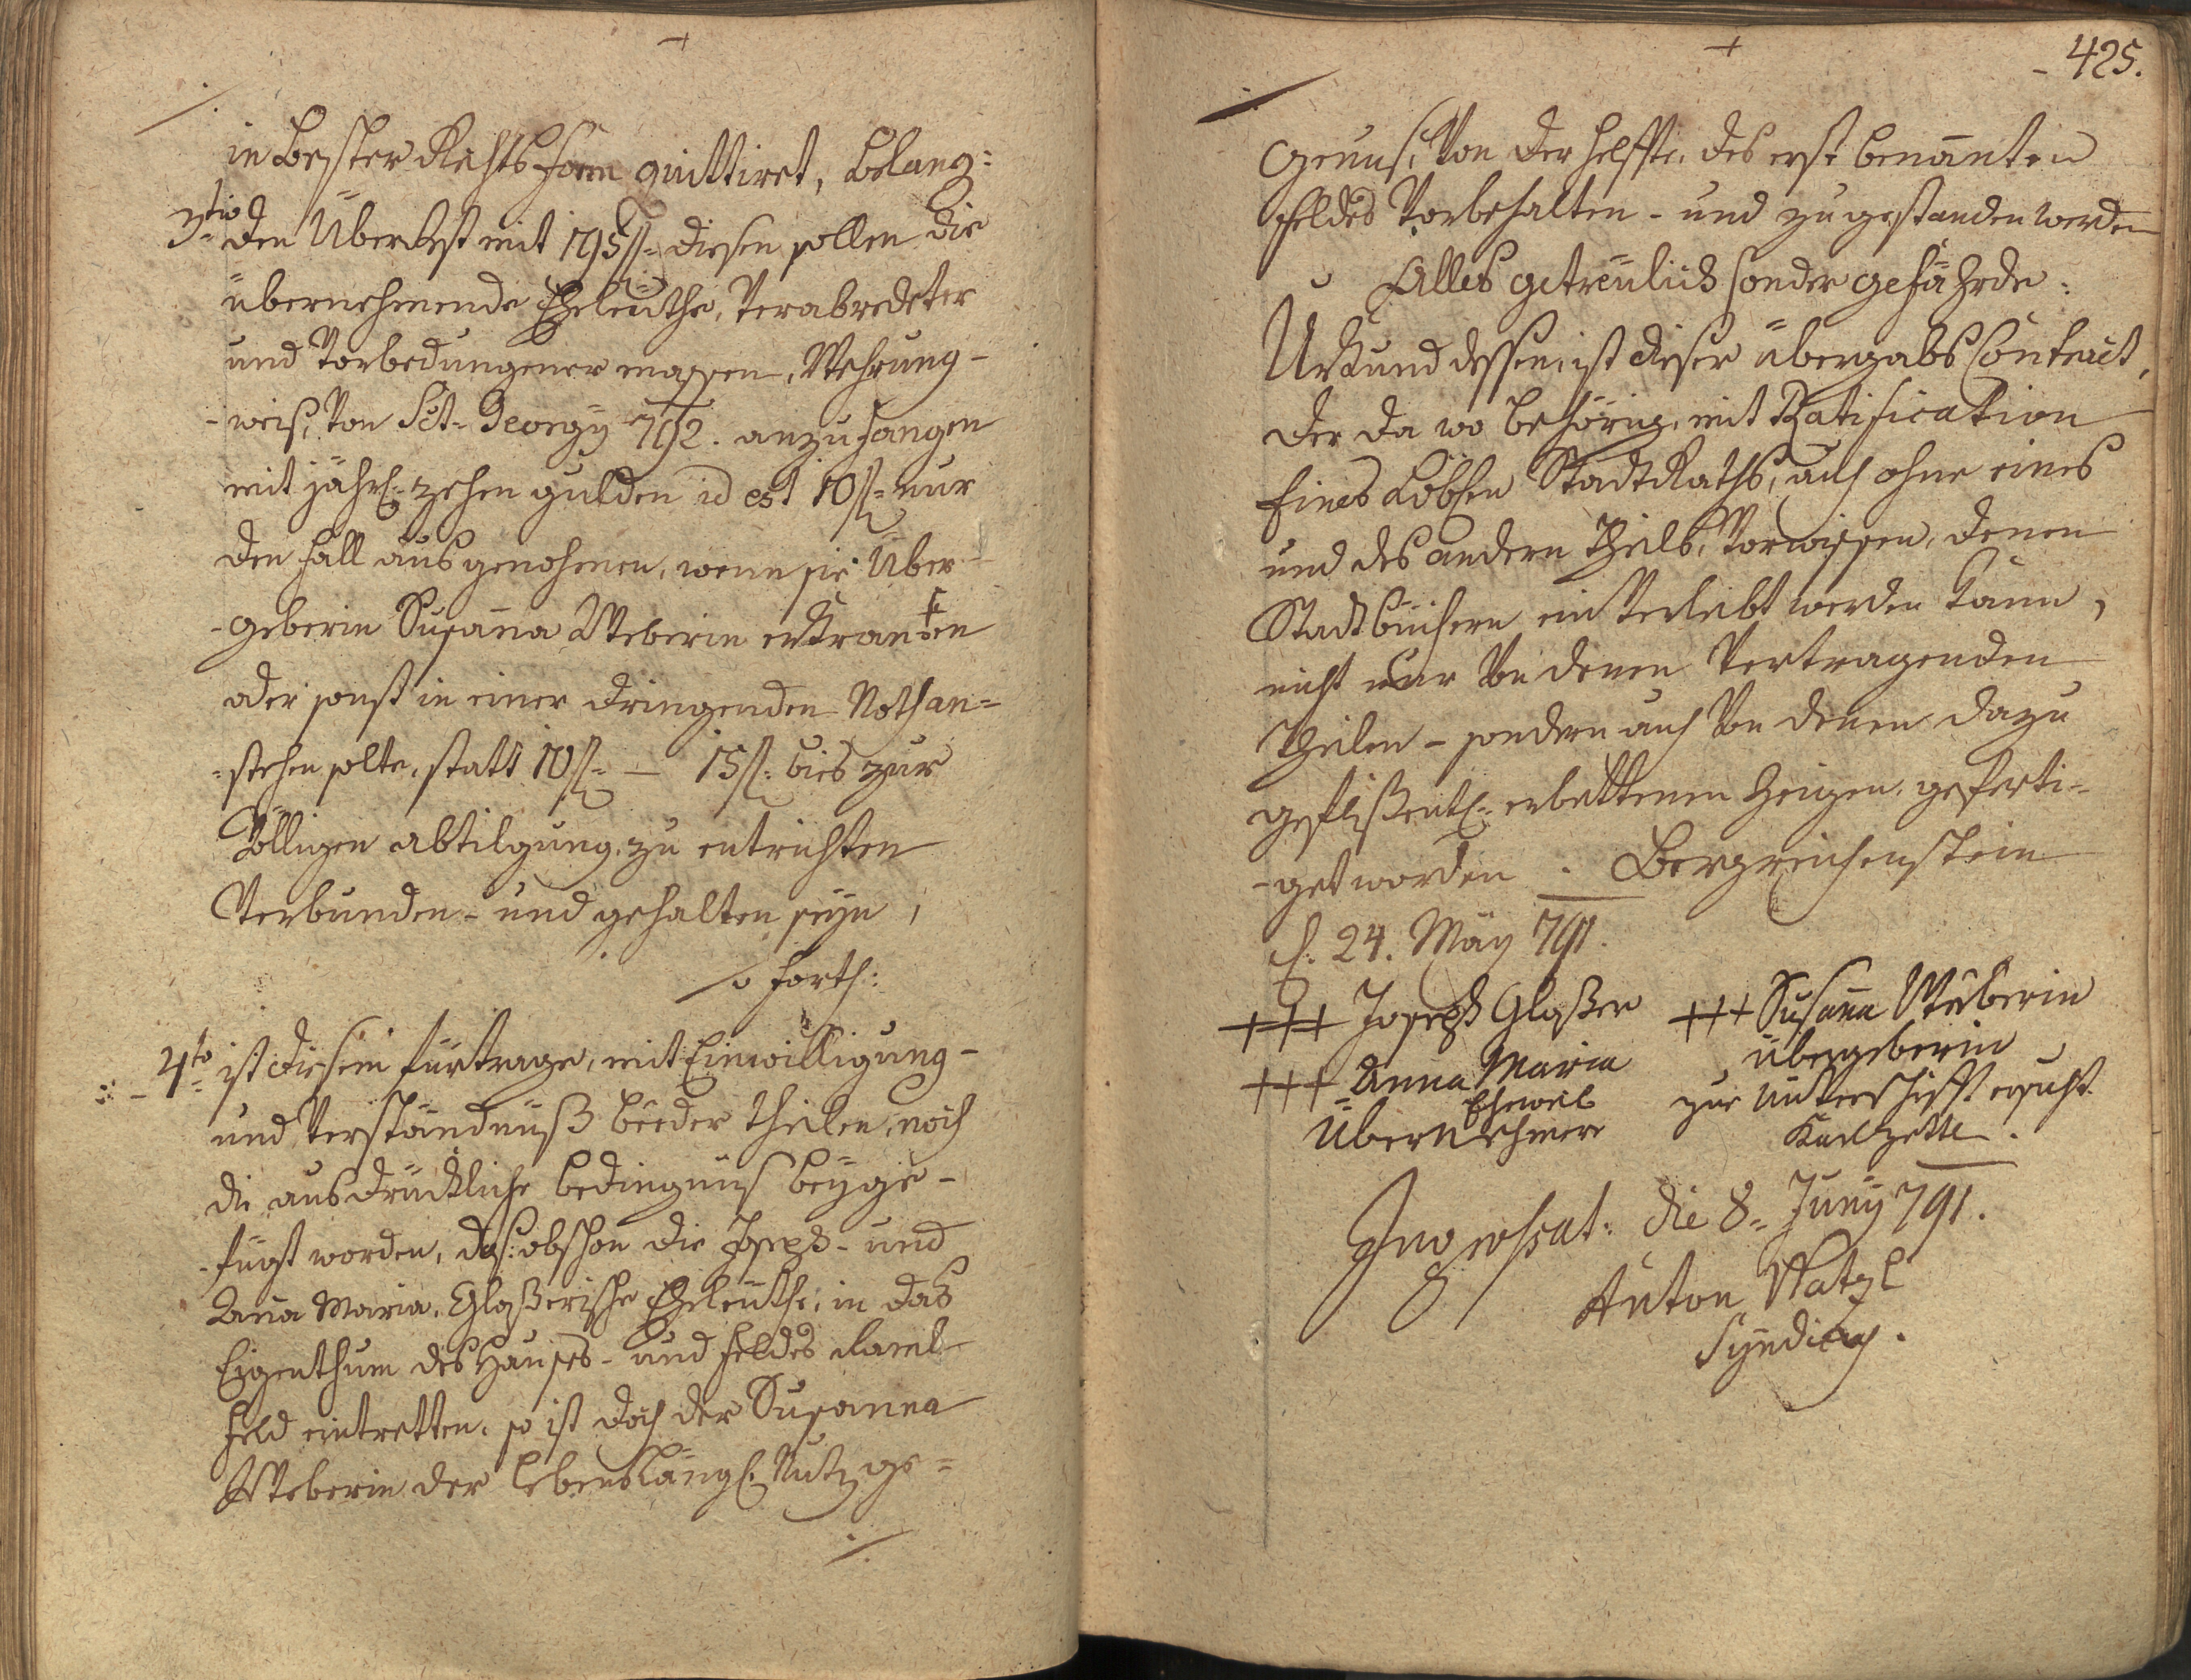 in bester Rechts form quittiret, belang:
3tio den Überrest mit 195 fl: diesen sollen die
übernehmende Eheleüthe, verabredeter
und vorbedungener massen, Wehrung-
-weiß, von Sct. Georgÿ 792. anzufangen
mit jährl: zehen gulden id est 10 fl: nur
den fall ausgenohmen, wenn sie Über-
-geberin Susana Weberin erkranken
oder sonst in einer dringenden Noth an=
=stehen solte, statt 10 fl: — 15 fl: bies zur
völligen abtilgung, zu entrichten
verbunden- und gehalten seÿn,
forth:
4to ist diesem fürtrage, mit Einwilligung-
und Verständnüß beeder theilen, noch
die ausdrückliche bedingnüs beÿge-
-fügt worden, das: obschon die Joseph- und
Ana Maria, Glaßerische Eheleüthe, in das
Eigenthum des Hauses- und feldes
feld eintretten, so ist doch der Susanna
Weberin der lebenslängl: Nutz ge=
- 425.
genuß, von der helffte, des erst benanten
feldes vorbehalten- und zugestanden werden
Alles getreülich sonder gefährde:
Urkund dessen, ist dieser übergabs Contract,
der da wo behörig, mit Ratification
Eines Löblen StadtRaths, auch ohne eines
und des andern theils, vorwissen, denen
Stadtbüchern einverleibt werden kann,
nicht nur von denen Vertragenden
theilen- sondern auch von denen dazu
geflißentl: erbettenen Zeügen, geferti-
-get worden. Bergreichenstein
d. 24. Maÿ 791.
+++ Joseph Glaßer
+++ Susana Weberin
übergeberin
+++ Anna Maria
Eheweib
Übernehmere
zur unterschrifft ersucht
Karl Zettl.
Ingrossat: die 8. Junÿ 791.
Anton Watzl
Sÿndicus.